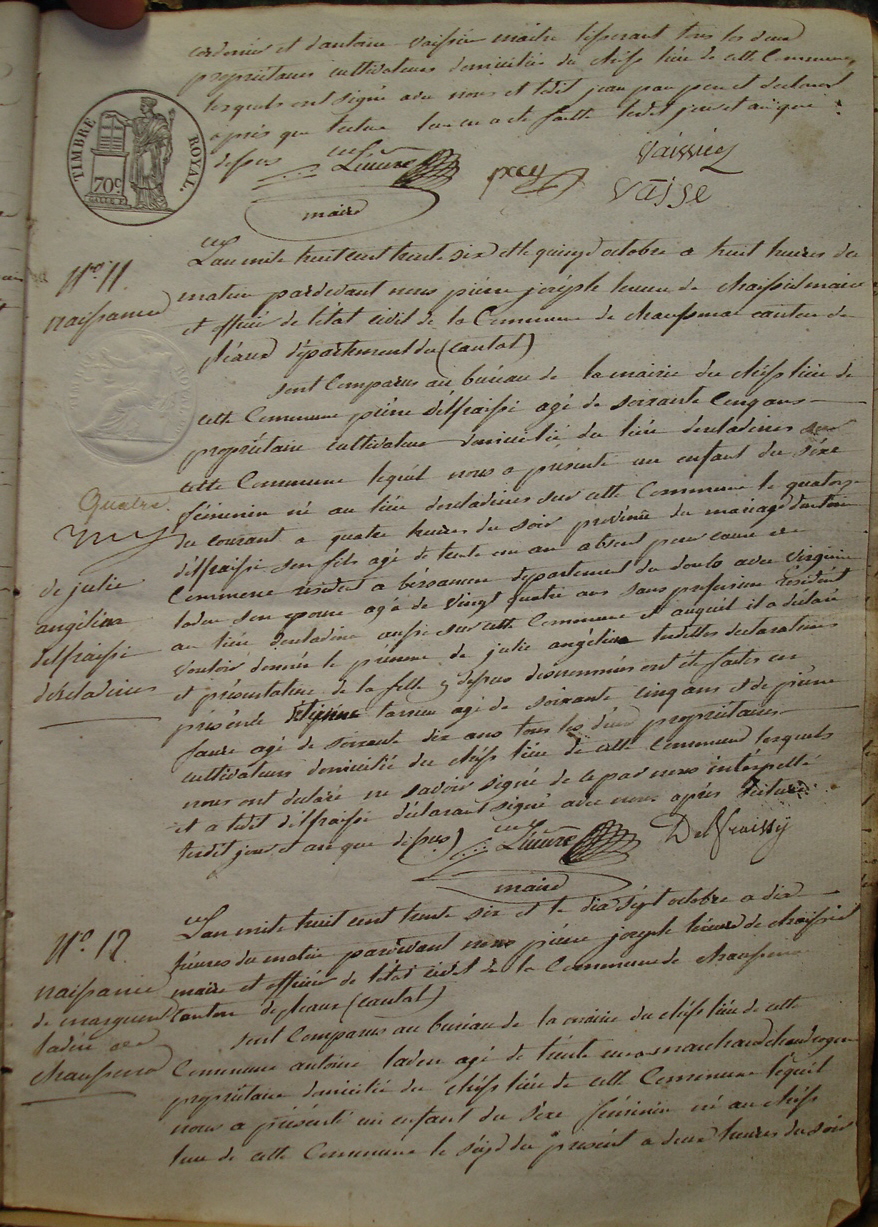 cordonnier et d'antoine vaissiere maitre tisserant tous les deux
propriétaires cultivateurs domiciliés du cheff lieu de cette Commune,
lesquels ont signé avec nous et ledit jean pau pecy et déclarant
après que lecture leur en a été faitte ledit jour et an que
dessus
TIMBRE ROYAL.
70c
Lheure
maire
pecy
Vaissiere
Vaisse
N° 11
naissance
Quatre
de julie
angélina
delfraissi
d'escladines
L'an mile huit cent trente six et le quinze d'octobre a huit heures du
matin pardevant nous pierre joséph heure de chaissiel maire
et officié de l'état civil de la Commune de chaussenac canton de
pléaux département du (cantal)
sont Comparus au buréau de la mairie du cheff lieu de
cette Commune piérre délfraissi agé de soixante cinq ans
propriétaire cultivateur domicilié du liéu descladines sur
cette Commune lequél nous a présenté un enfant du séxe
féminin né au liéu descladines sur cette Commune le quatorze
du courant a quatre heures du soir provénu du mariage d'antoine
délfraissi son fils agé de trente un an absent pour cause de
Commerce résidet a bésansone département du doubs avec virginie
ladeu son epouse agé de vingt quatre ans sans profession résident
au liéu descladines aussi sur cette Commune et auquél il a déclaré
vouloir donnér le prénom de julie angélina lesdittes déclarations
et présentation de la fille y déssus dénommée ont été faites en
présence d'étienne agé de soixante cinq ans et de piérre
faure agé de soixante dix ans tous les deux propriétaires
cultivateurs domicilié du cheff liéu de cette Commune lesquels
nous ont déclaré ne savoir signé de ce par nous intérpéllé
et a ledit délfraissi déclarant signé avec nous après lecture
ledit jour et an que dessus)
Lheure
maire
Delfraissy
N° 12
naissance
de marguerite
ladeu de
chaussenac
L'an mile huit cent trente six et le dix sépt octobre a dix
héures du matin pardevant nous pierre joseph heure de chaissiel
maire et officiér de l'état civil de la Commune de chaussenac
Canton de pléaux (cantal)
sont Comparus au buréau de la mairie du cheff liéu de cette
Commune antoine ladeu agé de trente un marchand chaudronnier
propriétaire domicilié du cheff liéu de cette Commune lequél
nous a présenté un enfant du séxe féminin né au cheff
lieu de cette Commune le séize du présent a deux heures du soir